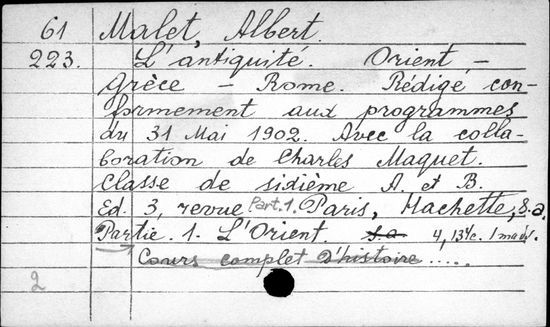 61 Malet, Albert.
223. L'antiquité. Orient –
Grèce – Rome. Rédigé con-
formement aux programmes
du 31 Mai 1902. Avec la colla-
boration de Charles Maquet.
Classe de sixième A. et B.
Ed. 3, revue Part. 1. Paris, Hachette, s.a.
Partie. 1. L'Orient. s.a. 4, 134c. 1
Cours complet d'histoire .....
2